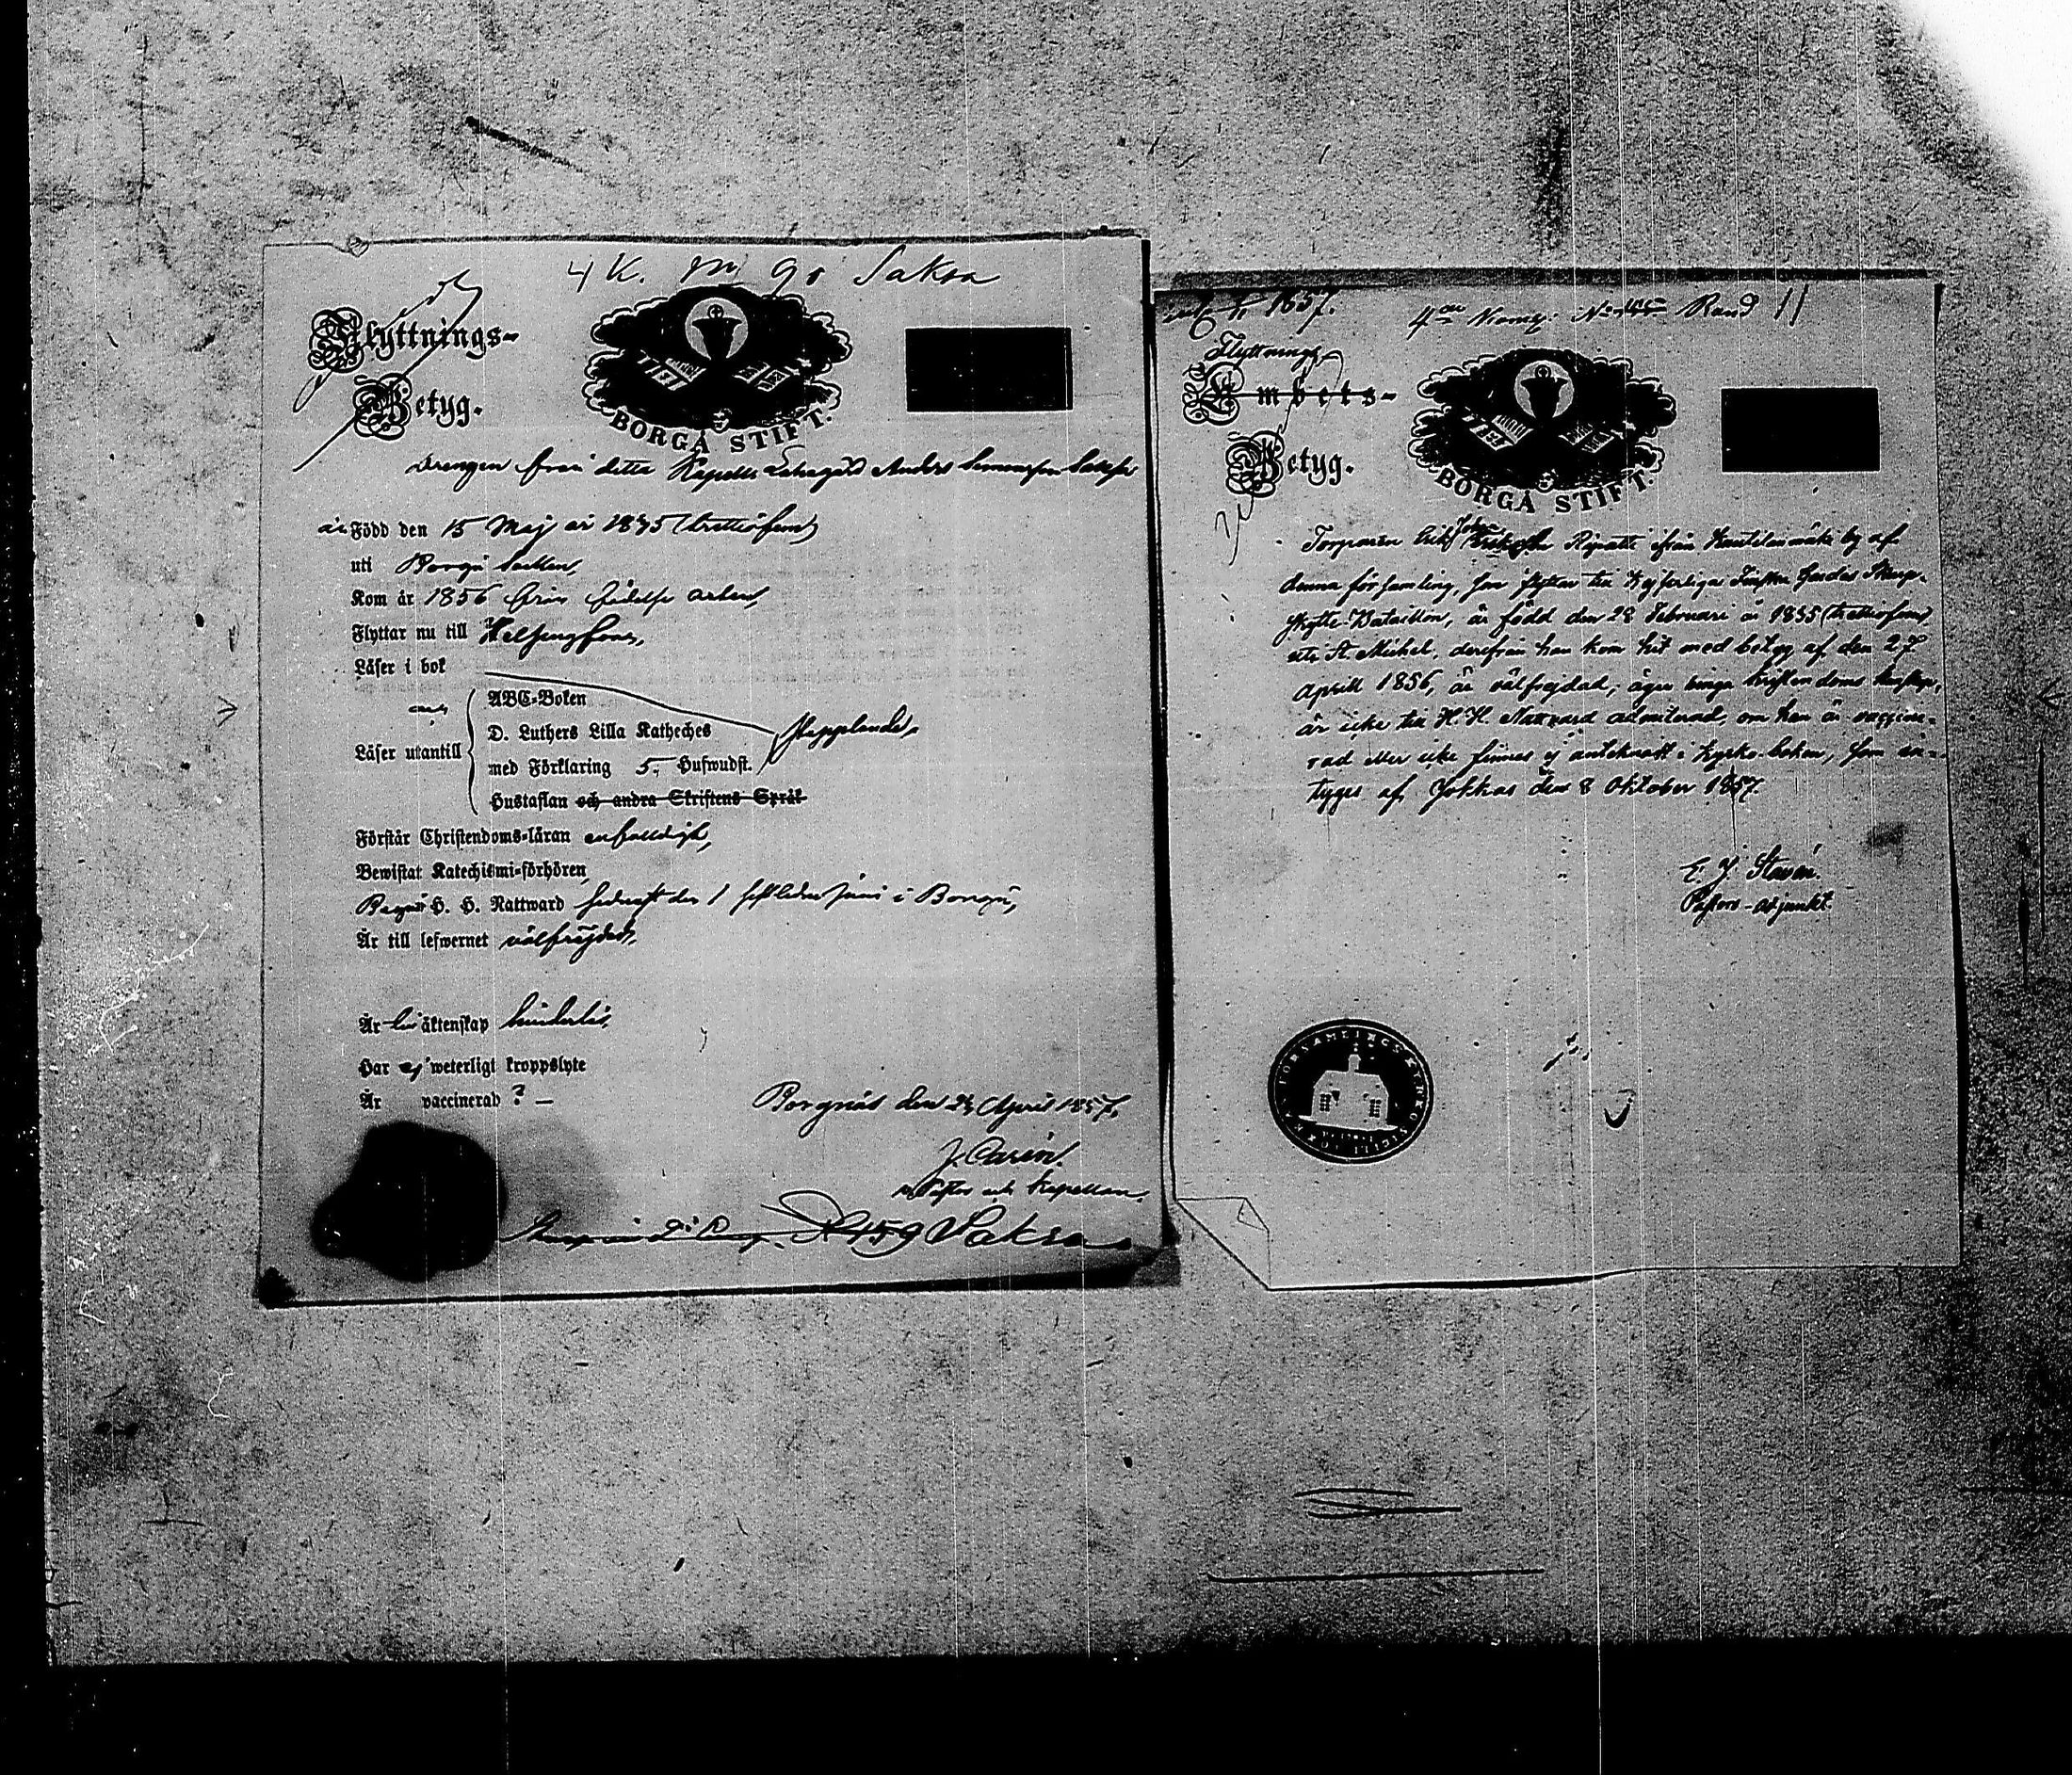 4 K. N 91 Saksa
Flyttnings-
Betyg.
BORGÅ STIFT.
Drengen från detta Kapells Anders Simonsson Saksa
är Född den 15 Maj år 1835 (trettiofem)
uti Borgå Socken,
Kom år 1856 från
Flyttar nu till Helsingfors,
Läser i bok
ABC-Boken
Läser utantill
D. Luthers Lilla Katheches
med Förklaring 5. Hufwudst.
Hustaflan och andra Skriftens Språk
Förstår Christendoms-läran enfaldigt,
Bewistat Katechismi-förhören,
Begått H. H. Nattward sednast den 1 Juni i Borgå,
Är till lefwernet välfrejdad,
Är till äktenskap hinderlös,
Har ej weterligt kroppslyte
Är vaccinerad ? —
Borgnäs den April 1857.
J. Carén.
v. Pastor och Kapellan
Saksa
1857.
4de Komp. Rand 11
Flyttnings
Embets-
Betyg.
BORGÅ STIFT.
Torparen Erik Johan Ripatti ifrån by af
denna församling, som flyttar till Kejserliga Finska Gardes Skarp-
skytte-Bataillon, är född den 28 Februari år 1835 (trettiofem)
uti St. Michel, derifrån han kom hit med betyg af den 27
Aprill 1856, är välfrejdad, äger ringa kristendoms kunskap,
är icke till H. H. Nattvard admitterad, om han är vaccine-
rad eller icke finnes ej antecknadt i Kyrko-boken, som in-
tygas af Jokkas den 8 Oktober 1857.
E. J. Stavén.
Pastors-adjunkt.
FÖRSAMLINGS KYRKO SIGILL